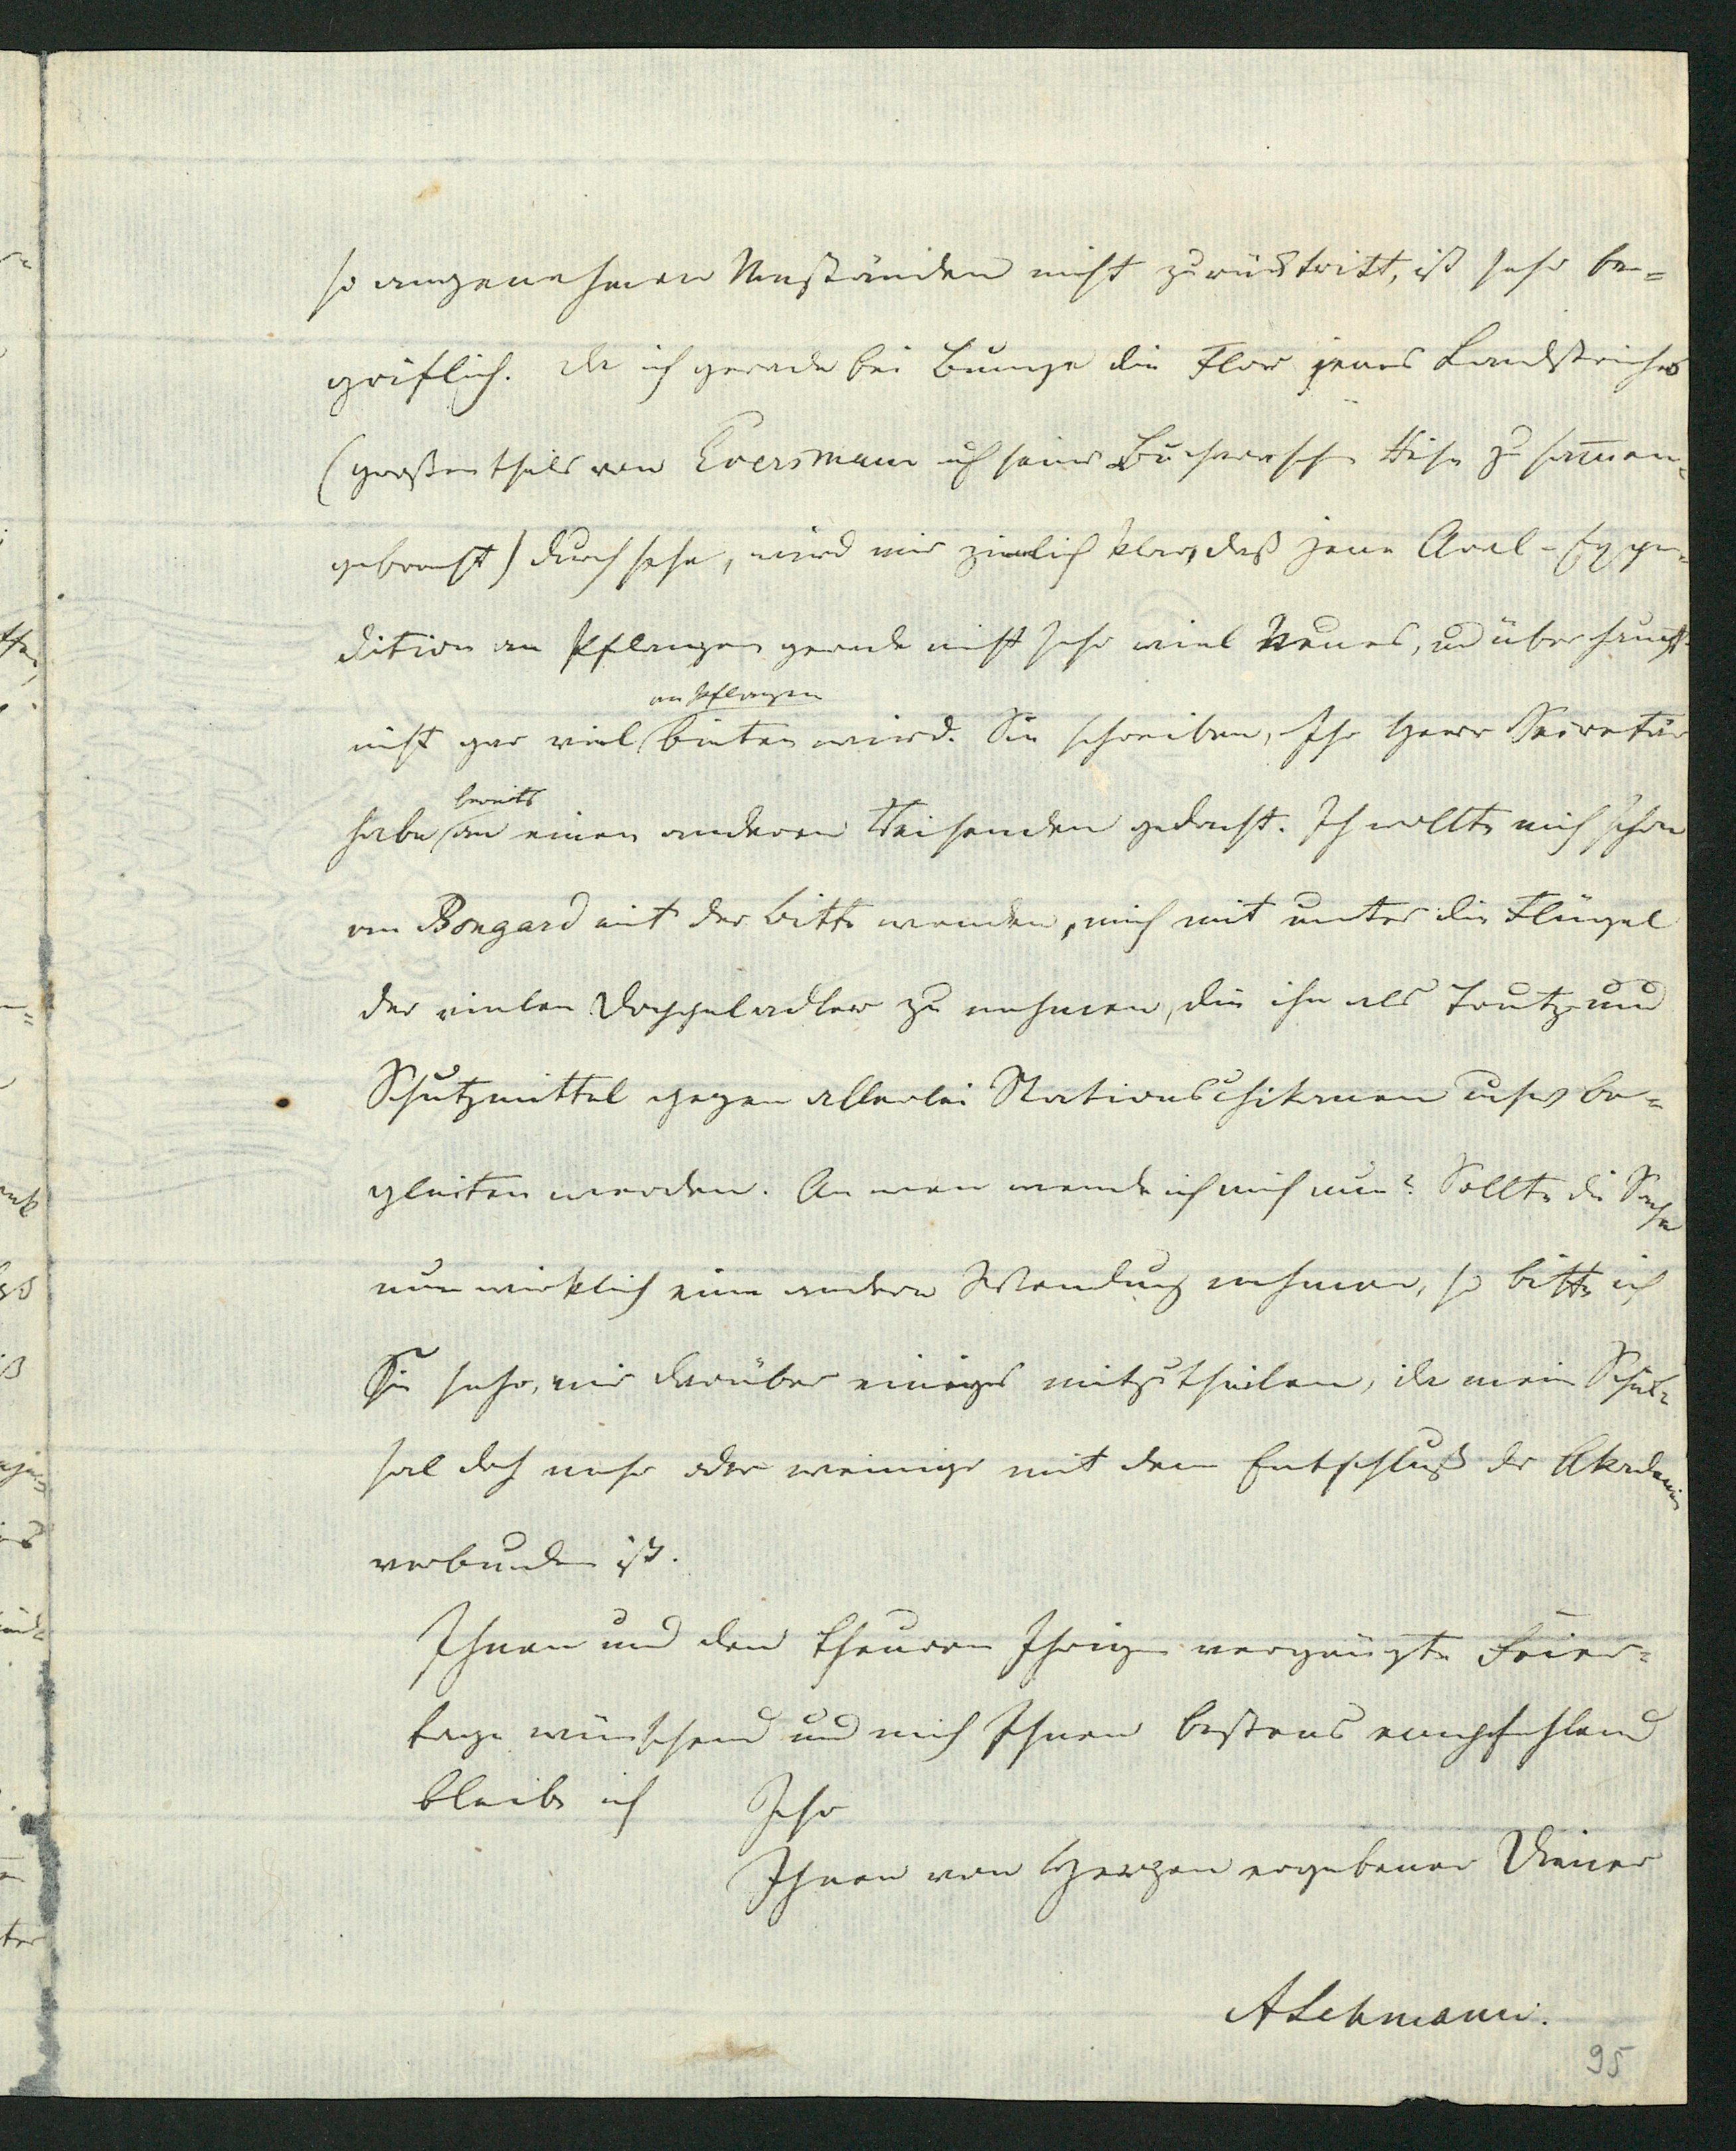 so angenehmen Umständen nicht zurücktritt, ist sehr be=
greiflich. Da ich gerade bei Bunge die Flor jenes Landstriches
(großentheils von Eversmann auf seiner Bucharischen Reise zusam̄en=
gebracht) durchsehe, wird mir ziemlich klar, daß jene Aral-Expe=
dition an Pflanzen gerade nicht sehr viel Neues, und überhaupt
an Pflanzen
nicht gar viel bieten wird. Sie schreiben, Ihr Herr Secretär
bereits
habe an einen anderen Reisenden gedacht. Ich wollte mich schon
an Bongard mit der Bitte wenden, mich mit unter die Flügel
der vielen Doppeladler zu nehmen, die ihn als Trutz und
Schutzmittel gegen allerlei Stationschikanen usw be=
gleiten werden. An wen wende ich mich nun? Sollte die Sache
nun wirklich eine andere Wendung nehmen, so bitte ich
Sie sehr, mir darüber einiges mitzutheilen, da mein Schick=
sal doch mehr oder weniger mit dem Entschluß der Akademie
verbunden ist.
Ihnen und den theuren Ihrigen vergnügte Feier=
tage wünschend und mich Ihnen bestens empfehlend
bleibe ich Ihr
Ihnen von Herzen ergebener Diener
ALehmann.
95